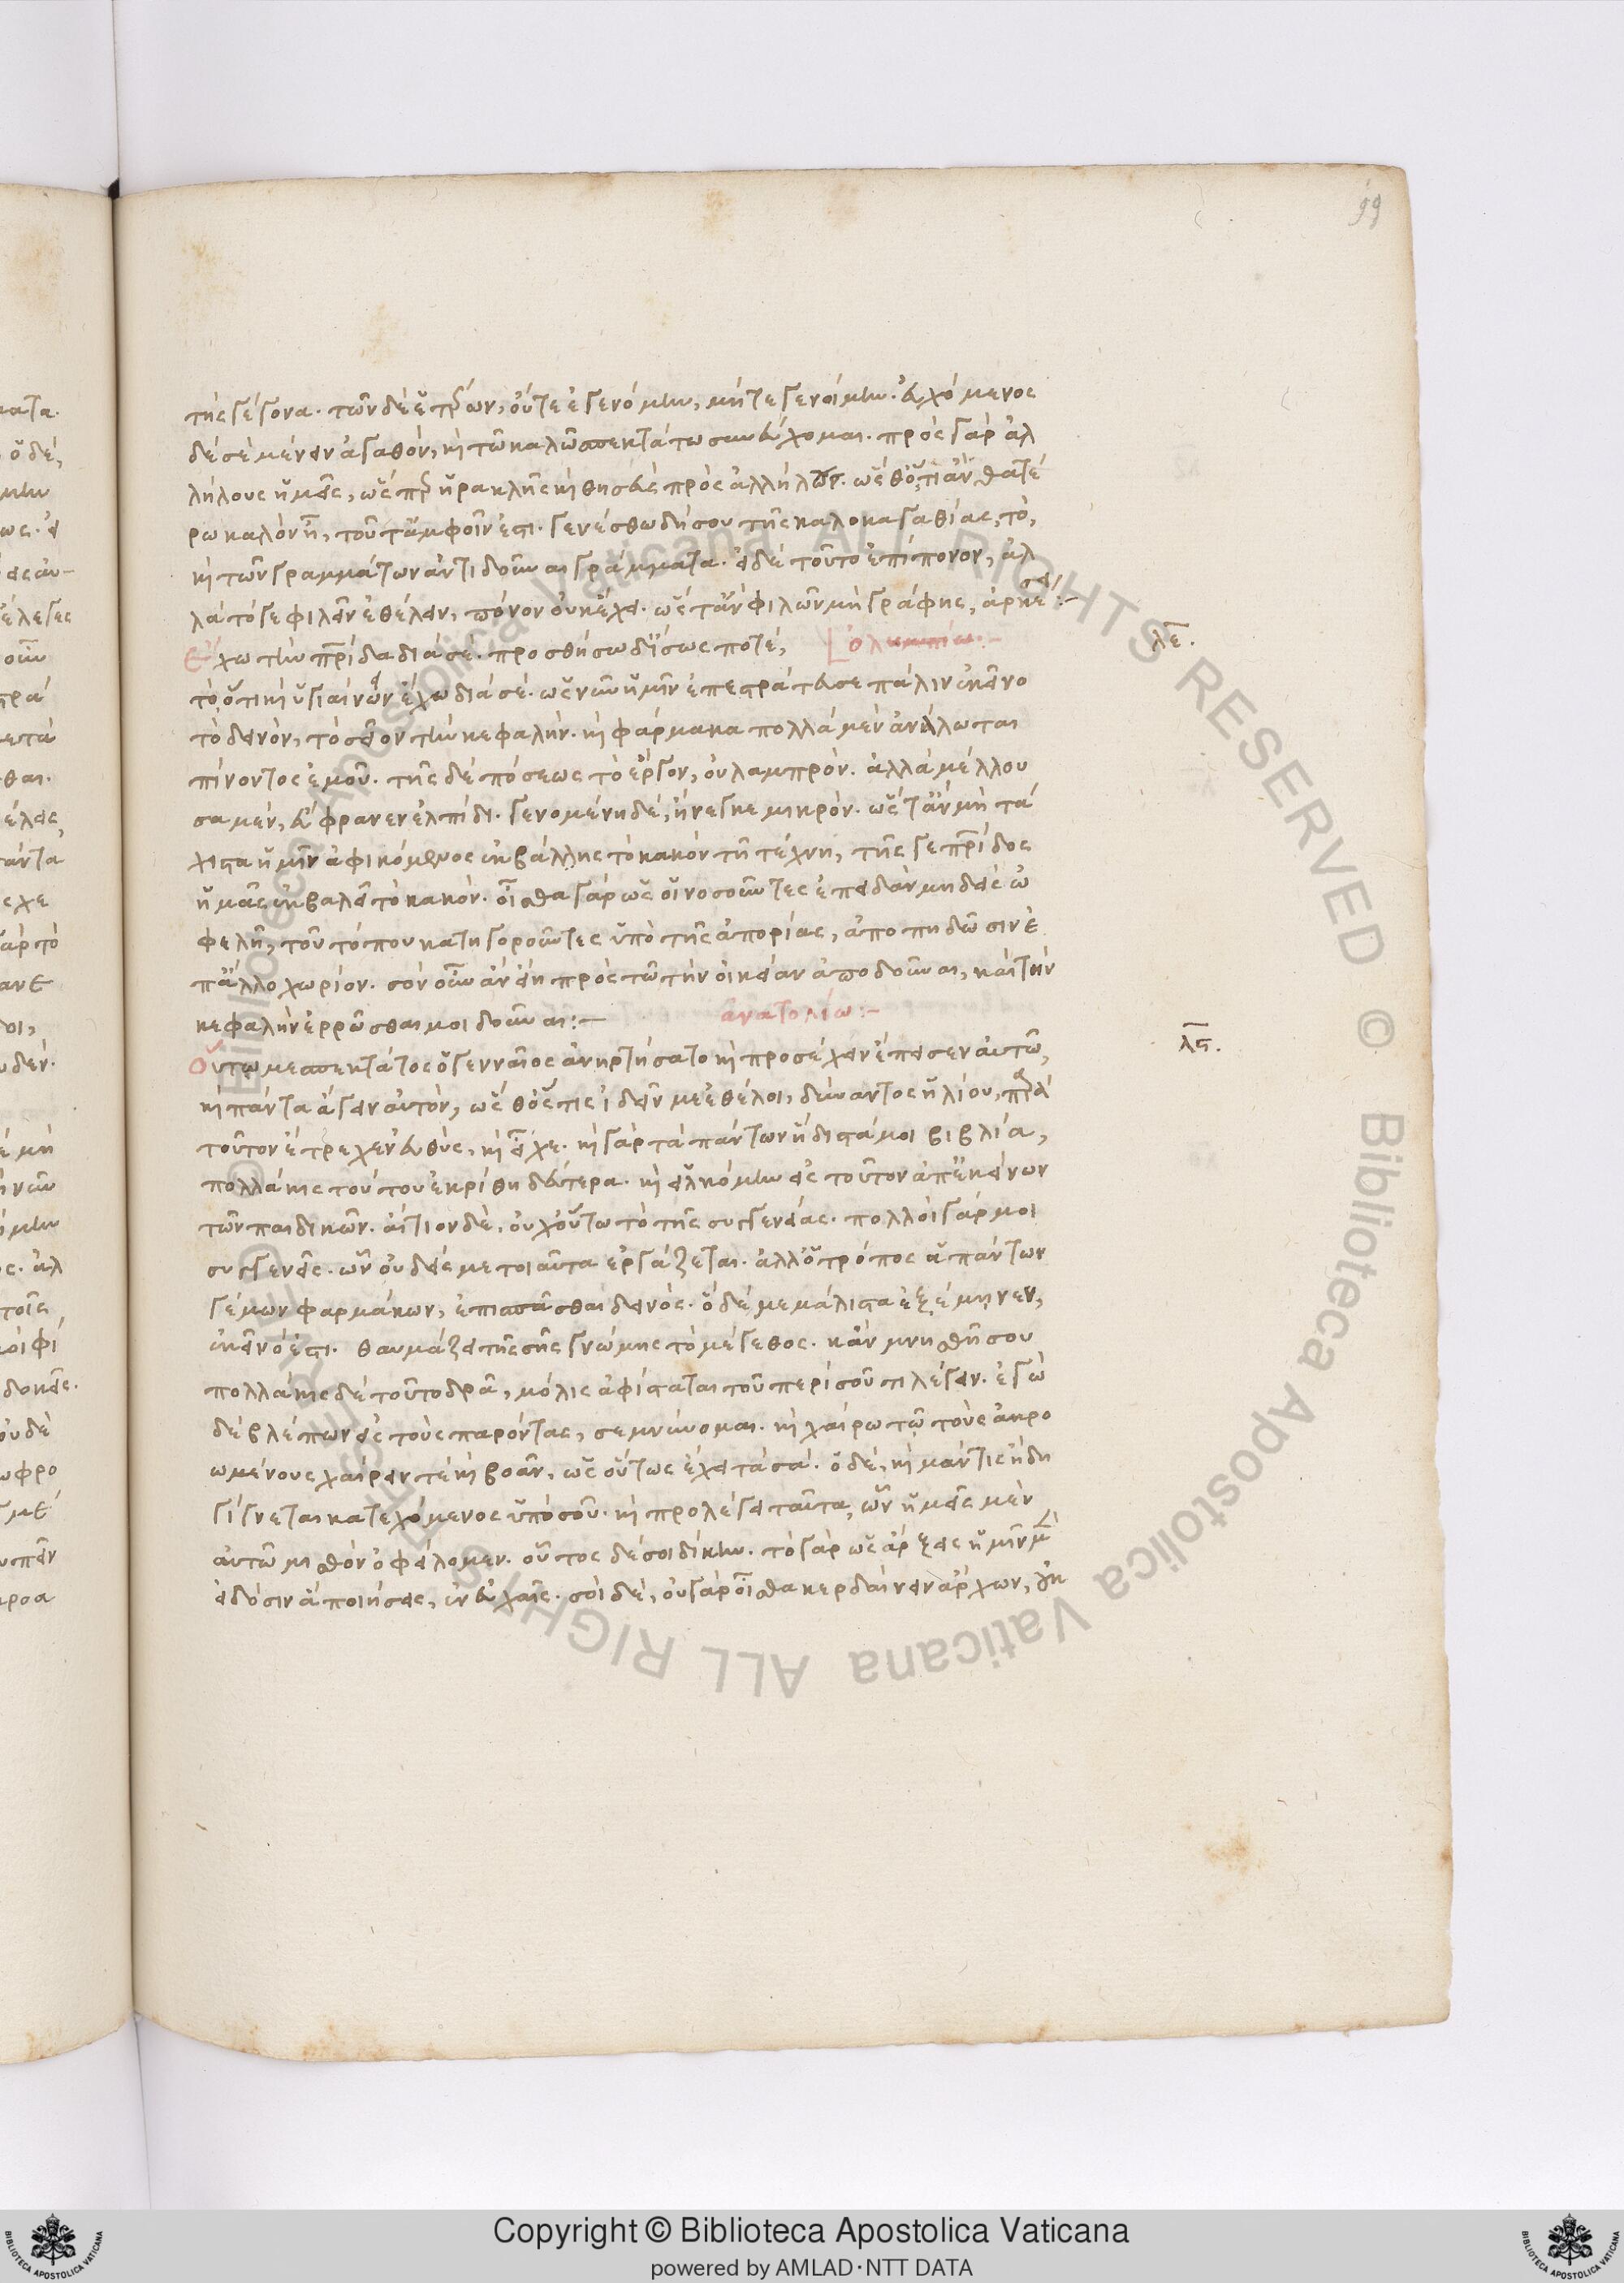 99
της γέγονα. τῶν δὲ ἑτ́ρων, οὔτε ἐγενόμην, μήτε γενοίμην. εὐχόμενος
δέ σε μένειν ἀγαθόν, κὶ τῶ καλῶ σπεκτάτω συνεύχομαι. πρὸς γὰρ ἀλ
λήλους ἡμεῖς, ὥσπ ἡρακλῆς κὶ θησεὺς πρὸς ἀλλήλους. ὥσθ' ὅ,τι ἂν θατέ
ρω καλὸν ἦ, τοῦτ' ἀμφοῖν ἐστι. γενέσθω δή σου τῆς καλοκαγαθίας, τὸ,
κὶ τῶν γραμμάτων ἀντιδοῦναι γράμματα. εἰ δὲ τοῦτο ἐπίπονον, ἀλ
λὰ τό γε φιλεῖν ἐθέλειν, πόνον οὐκ ἔχει. ὥστ' ἂν φιλῶν μὴ γράφης, ἀρκέσει:-
Ἔχω τὴν πρίδα διὰ σέ. προσθήσω δ' ἴσως ποτέ, ὀλυμπίω:-
λε.
τὸ, ὅτι κὶ ὑγιαίνων ἔχω διὰ σέ. ὡς νῦν ἡμῖν ἐπεστράτευσε πάλιν ἐκεῖνο
τὸ δεινόν, τὸ σεῖον τὴν κεφαλήν. κὶ φάρμακα πολλὰ μὲν ἀνήλωται
πίνοντος ἐμοῦ. τῆς δὲ πόσεως τὸ ἔργον, οὐ λαμπρόν. ἀλλὰ μέλλου
σα μέν, εὔφρανεν ἐλπίδι. γενομένη δέ, ἤνεγκε μικρόν. ὥστ' ἂν μὴ τά
χιστα ἡμῖν ἀφικόμενος ἐκβάλλης τὸ κακὸν τῆ τέχνη, τῆς γε πρίδος
ἡμᾶς ἐκβαλεῖ τὸ κακόν. οἶσθα γὰρ ὡς οἱ νοσοῦντες ἐπειδὰν μηδεὶς ὠ
φελῆ, τοῦ τόπου κατηγοροῦντες ὑπὸ τῆς ἀπορίας, ἀποπηδῶσιν ἐ
π' ἄλλο χωρίον. σὸν οὖν ἂν εἴη πρὸς τῶ τὴν οἰκείαν ἀποδοῦναι, καὶ τὴν
κεφαλὴν ἐρρῶσθαι μοι δοῦναι:- ἀνατολίω:-
λς.
Οὕτω με σπεκτάτος ὁ γενναῖος ἀνηρτήσατο κὶ προσέχειν ἔπεισεν αὐτῶ,
κὶ πάντα ἄγειν αὐτόν, ὥσθ' ὅστις ἰδεῖν με ἐθέλοι, δύναντος ἡλίου, παρὰ
τοῦτον ἔτρεχεν εὐθύς, κὶ εἶχε. κὶ γὰρ τὰ πάντων ἥδιστά μοι βιβλία,
πολλάκις τούτου ἐκρίθη δεύτερα. κὶ εἱλκόμην εἰς τοῦτον ἀπ' ἐκείνων
τῶν παιδικῶν. αἴτιον δὲ, οὐχ οὕτω τὸ τῆς συγγενείας. πολλοὶ γάρ μοι
συγγενεῖς. ὧν οὐδείς με τοιαῦτα ἐργάζεται. ἀλλ' ὁ τρόπος ἁπάντων
γέμων φαρμάκων, ἐπισπᾶσθαι δεινός. ὃ δέ με μάλιστα ἐξέμηνεν,
ἐκεῖνό ἐστι. θαυμάζει τῆς σῆς γνώμης τὸ μέγεθος. κἂν μνησθῆ σου
πολλάκις δὲ τοῦτο δρᾶ, μόλις ἀφίσταται τοῦ περὶ σοῦ τι λέγειν. ἐγὼ
δὲ βλέπων εἰς τοὺς παρόντας, σεμνύνομαι. κὶ χαίρω τῶ τοὺς ἀκρο
ωμένους χαίρειν τὲ κὶ βοᾶν, ὡς οὕτως ἔχει τὰ σά. ὁ δὲ, κὶ μάντις ἤδη
γίγνεται κατεχόμενος ὑπὸ σοῦ. κὶ προλέγει ταῦτα, ὧν ἡμεῖς μὲν
αὐτῶ μισθὸν ὀφείλομεν. οὗτος δὲ σοὶ δίκην. τὸ γὰρ ὡς ἄρξεις ἡμῖν μὲν
ἐδόσιν ἃ ποιήσεις, ἐν εὐχαῖς. σοὶ δὲ, οὐ γὰρ οἶσθα κερδαίνειν ἄρχων, ἐκ
Copyright © Biblioteca Apostolica Vaticana
powered by AMLAD·NTT DATA